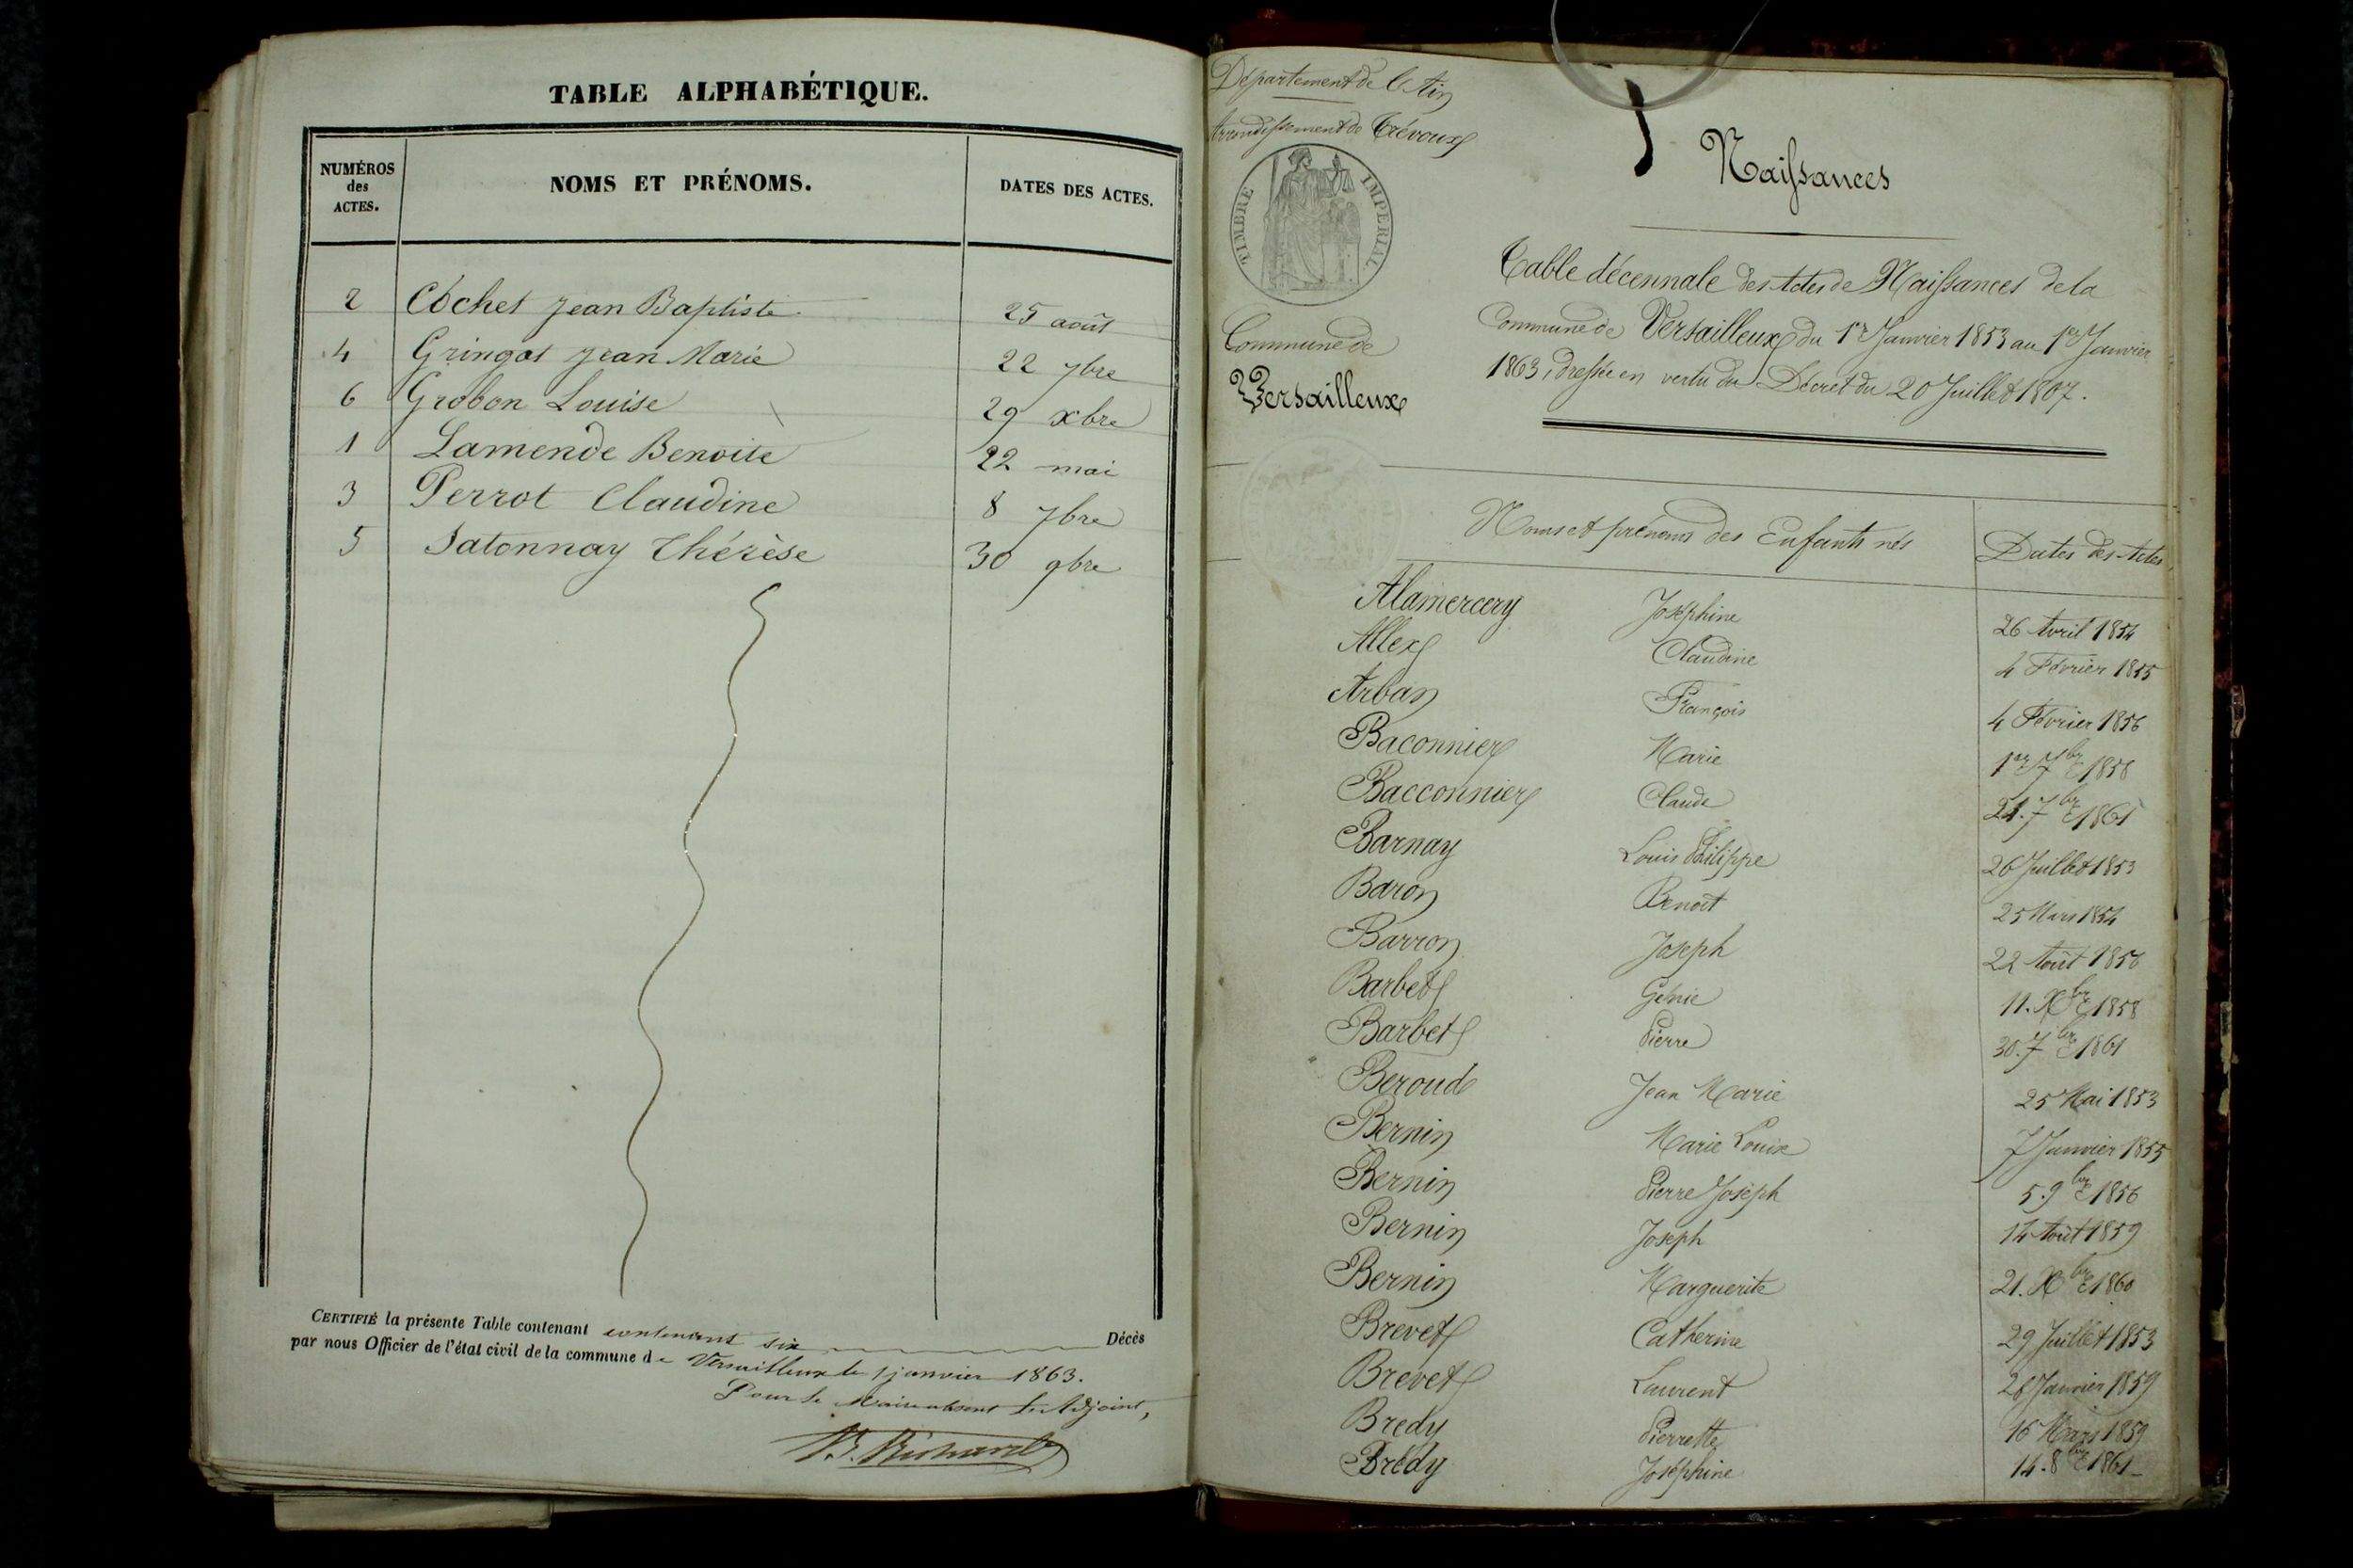 TABLE ALPHABÉTIQUE.
NUMÉROS des ACTES. NOMS ET PRÉNOMS. DATES DES ACTES.
2 Cochet Jean Baptiste 25 août
4 Gringat Jean Marie 22 7bre
6 Grobon Louise 29 xbre
1 Lamende Benoite 22 mai
3 Perrot Claudine 8 7bre
5 Satonnay Thérèse 30 9bre
CERTIFIÉ la présente Table contenant contenant six Décès
par nous Officier de l'état civil de la commune de Versailleux le 1 janvier 1863.
Pour le Maire absent le Adjoint,
B. Richard
Département de l'Ain
Arrondissement de Trévoux
TIMBRE IMPERIAL
Commune de
Versailleux
Naissances
Table décennale des Actes de Naissances de la
Commune de Versailleux du 1er Janvier 1853 au 1er Janvier
1863, dressée en vertu du Décret du 20 Juillet 1807.
Noms et prénoms des Enfants nés Dates des Actes
Alamercery Joséphine 26 Avril 1854
Allex Claudine 4 Février 1855
Arban François 4 Février 1856
Baconnier Marie 1er 7bre 1858
Bacconnier Claude 21. 7bre 1861
Barnay Louis Philippe 26 Juillet 1853
Baron Benoît 25 Mars 1854
Barron Joseph 22 Août 1856
Barbet Génie 11. Xbre 1858
Barbet Pierre 30. 7bre 1861
Beroud Jean Marie 25 Mai 1853
Bernin Marie Louise 7 Janvier 1855
Bernin Pierre Joseph 5. 9bre 1856
Bernin Joseph 14 Août 1859
Bernin Marguerite 21. Xbre 1860
Brevet Catherine 29 Juillet 1853
Brevet Laurent 26 Janvier 1859
Bredy Pierrette 16 Mars 1859
Bredy Joséphine 14. 8bre 1861